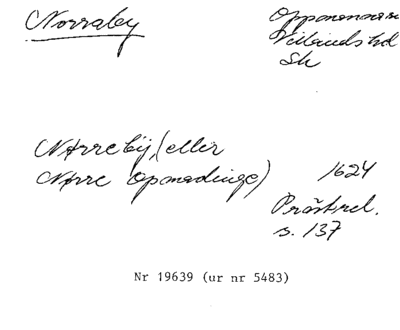 Norraby
Oppmanna sn
Villands hd
Sk
Nörrebÿ, (eller
Nörre Opmadinge)
1624
Prästrel.
s. 137
Nr 19639 (ur nr 5483)